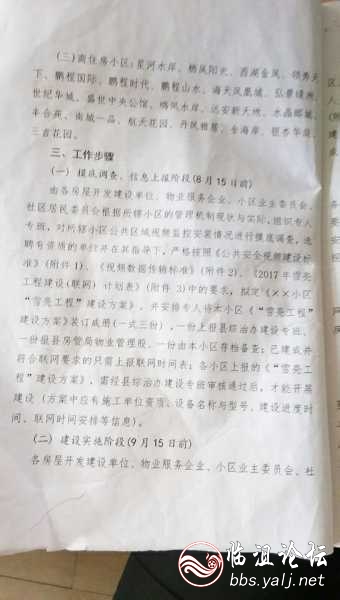 (三)商住房小区:星河水岸、栖凤阳光、西湖金凤、领秀天
下、鹏程国际、鹏程时代、鹏程山水、海天凤凰城、弘景绿洲、
世纪华城、盛世中央公馆、栖凤水岸、远安新天地、水晶郦城、
丰合苑、南城一品、航天花园、丹凤雅居、金海岸、银杏华庭、
三吉花园。
三、工作步骤
(一)摸底调查、信息上报阶段(8月15日前)
由各房屋开发建设单位、物业服务企业、小区业主委员会、
社区居民委员会根据所辖小区的管理机制现状与实际,组织专人
专班,对所辖小区公共区域视频监控安装情况进行摸底调查,选
聘有资质的单位并在其指导下,严格按照《公共安全视频建设标
准》(附件1)、《视频数据传输标准》(附件2)、《2017年雪亮
工程建设(联网)计划表》(附件3)中的要求,拟定《××小区
“雪亮工程”建设方案》,并安排专人将本小区《“雪亮工程”
建设方案》装订成册(一式三份),一份上报县综治办建设专班,
一份报县房管局物业管理股,一份由本小区存档备查;已建成并
符合联网要求的只需上报联网时间表;各小区上报的《“雪亮工
程”建设方案》,需经县综治办建设专班审核通过后,才能开展
建设(方案中应有施工单位资质、设备名称与型号、建设进度时
间、联网时间安排等信息)。
(二)建设实施阶段(9月15日前)
各房屋开发建设单位、物业服务企业、小区业主委员会、社
临沮论坛
bbs.yalj.net